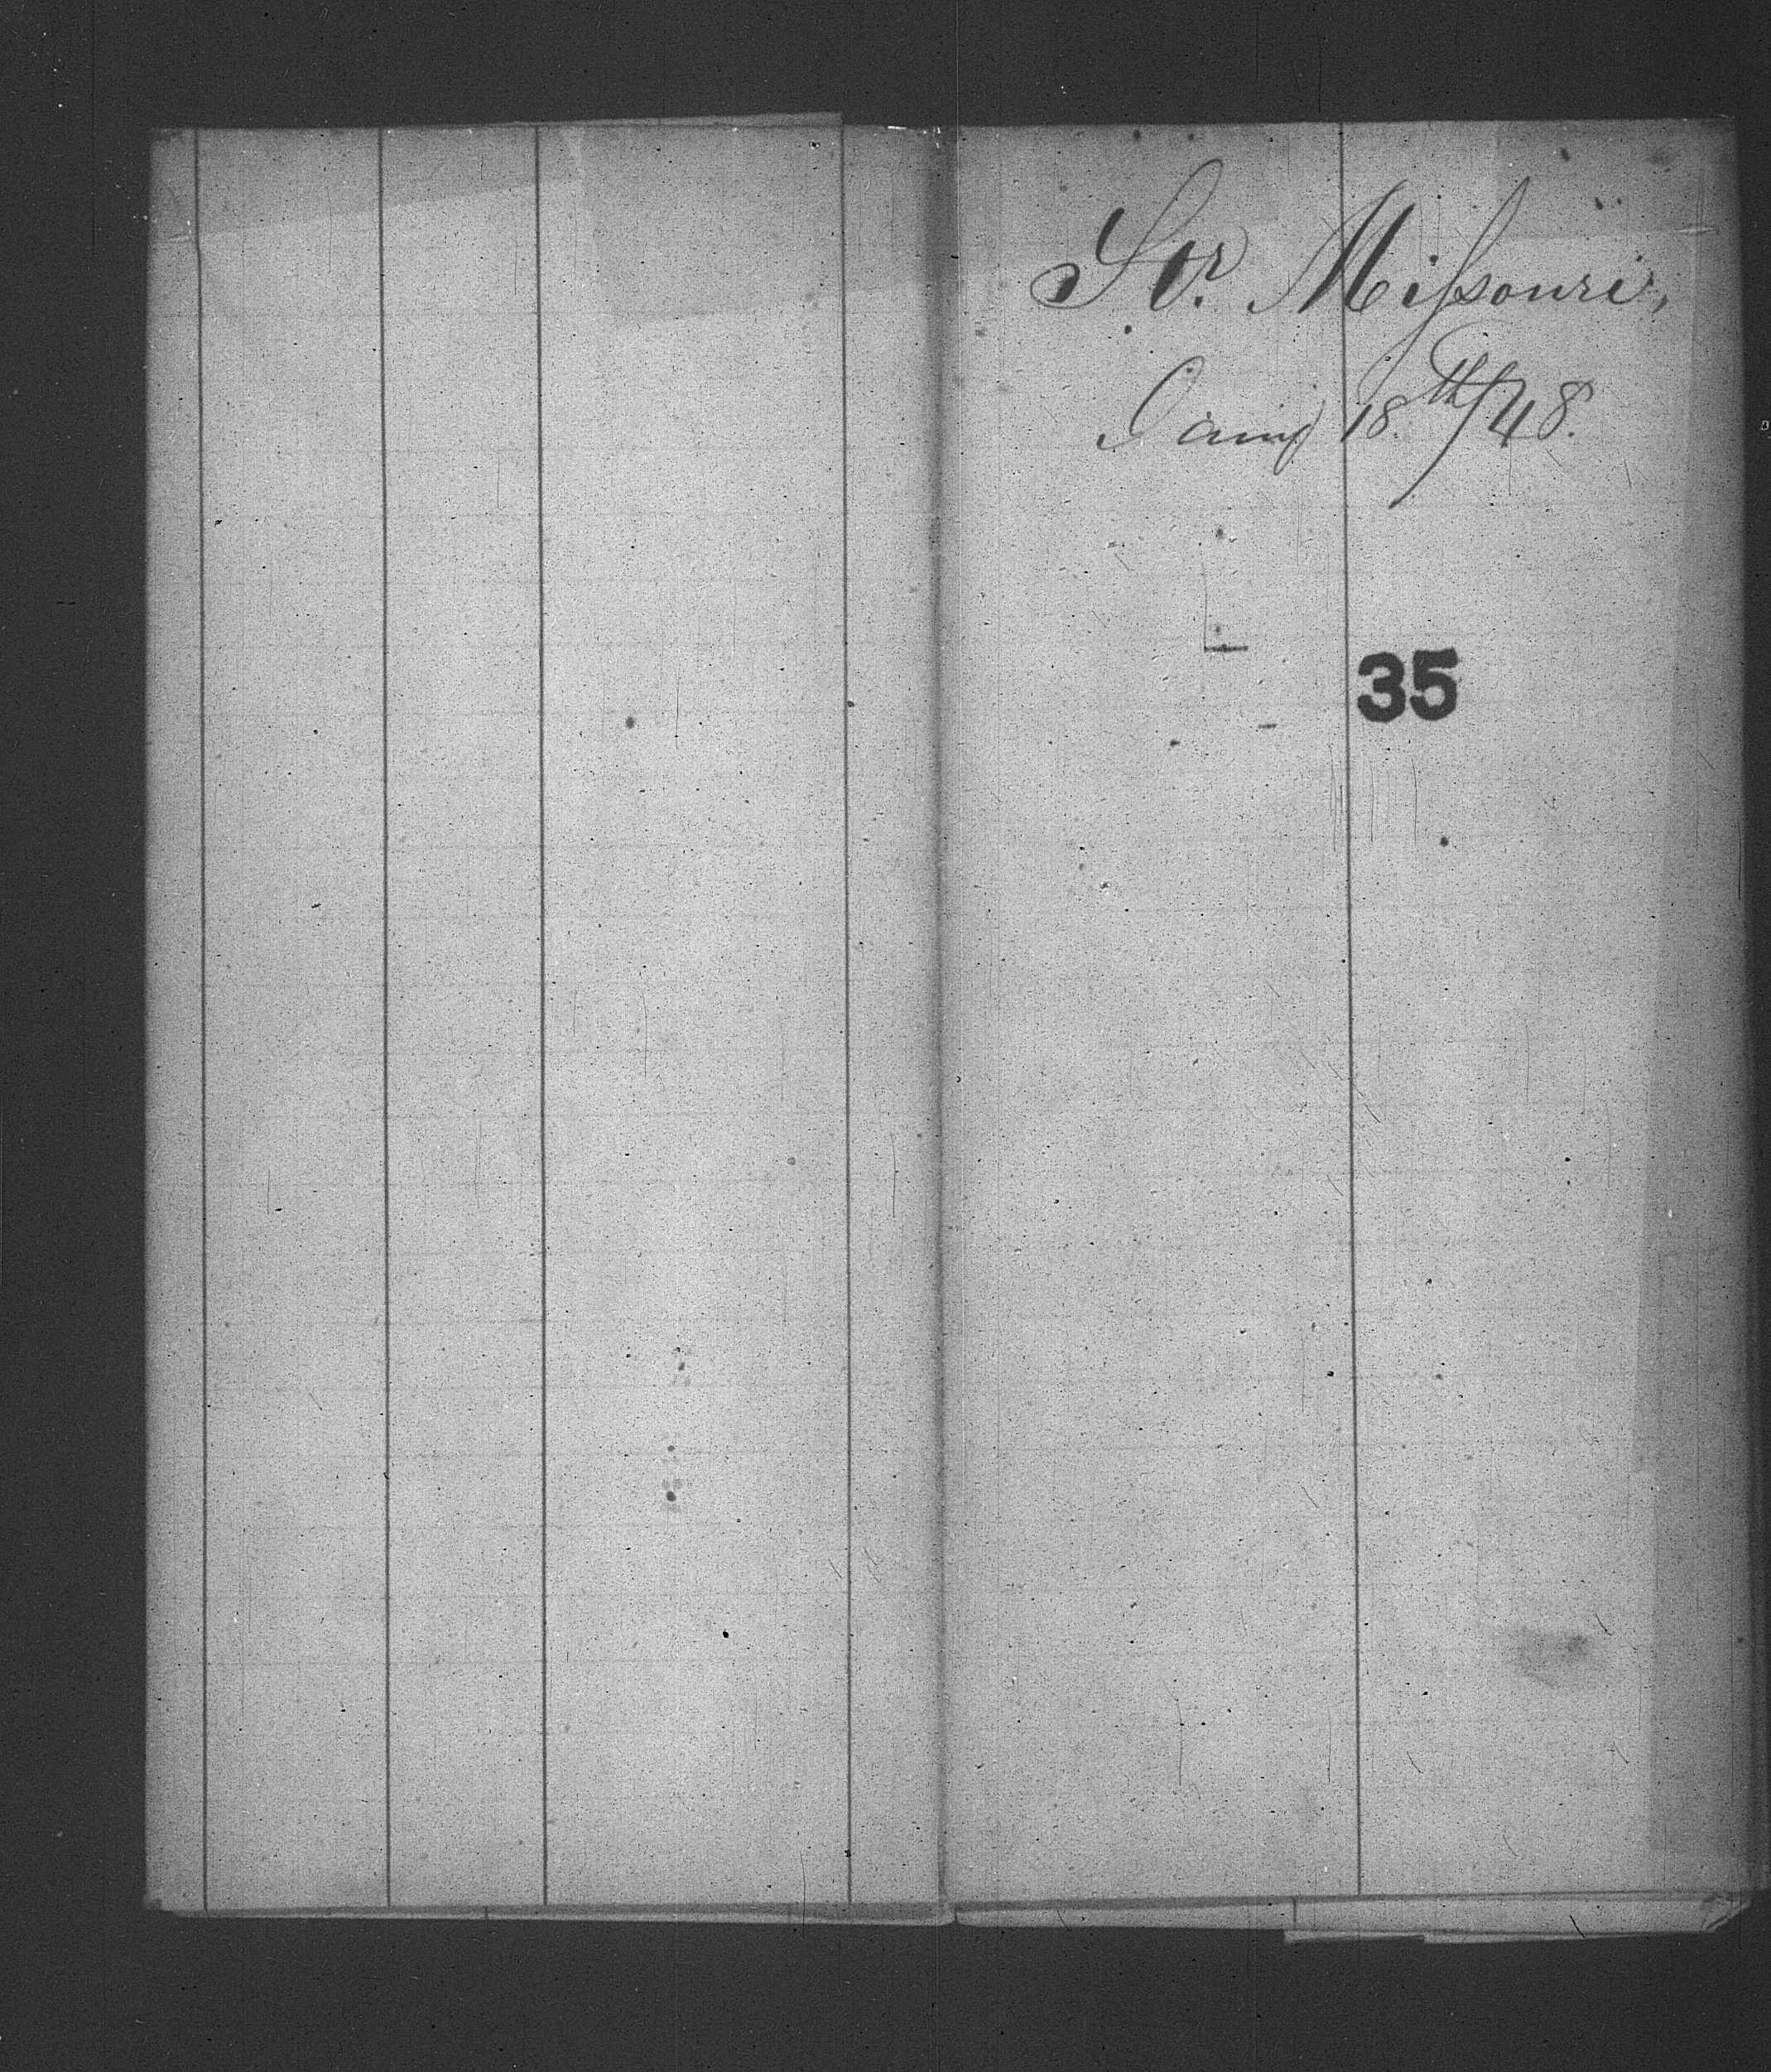 Str. Missouri,
Jany 18.th/48.
35